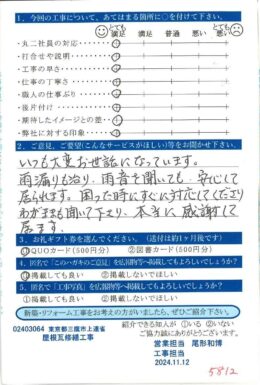 1. 今回の工事について、あてはまる箇所に○を付けて下さい。
とても満足 満足 普通 悪い とても悪い
・丸二社員の対応…
・打合せや説明…
・工事の早さ…
・仕事の丁寧さ…
・職人の仕事ぶり…
・後片付け…
・期待したイメージとの差…
・弊社に対する印象…
2. ご意見、ご要望(こんなサービスがほしい)等をお聞かせ下さい。
いつも大変お世話になっています。
雨漏りも治り、雨音を聞いても、安心して
居られます。困った時にすぐに対応してくださり
わがままも聞いて下さり、本当に感謝して
居ます。
3. お礼ギフト券を選んでください。(送付は約1ヶ月後です)
①QUOカード(500円分) ②図書カード(500円分)
4. 匿名で「このハガキのご意見」を広報物等へ掲載してもよろしいでしょうか?
①掲載しても良い ②掲載しないでほしい
5. 匿名で「工事写真」を広報物等へ掲載してもよろしいでしょうか?
①掲載しても良い ②掲載しないでほしい
新築・リフォーム工事をお考えの方がいましたら、ぜひご紹介下さい。
紹介できる知人が ①いる ②いない
02403064 東京都三鷹市上連雀
ご協力誠にありがとうございます。
屋根瓦修繕工事
営業担当 尾形和博
工事担当
2024.11.12
5812